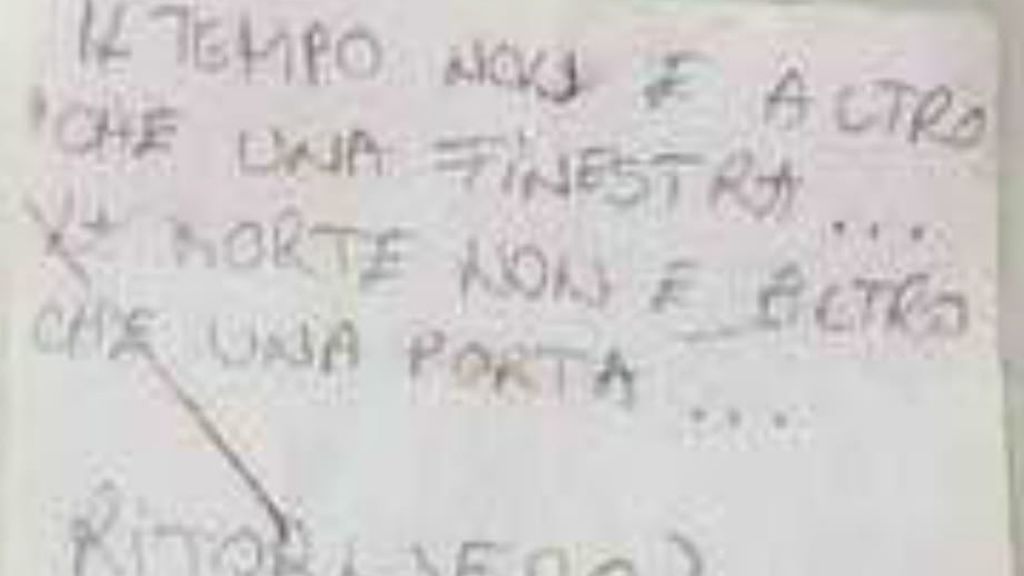 IL TEMPO NON E ALTRO
CHE UNA FINESTRA ...
LA MORTE NON E ALTRO
CHE UNA PORTA ...
RITORNERO